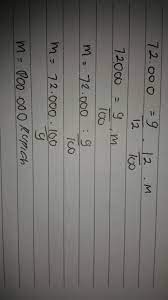 72.000 = 9/12 . 12/100 . M
72000 = 9/100 . M
M = 72.000 : 9/100
M = 72.000 . 100/9
M = 800.000 Rupiah